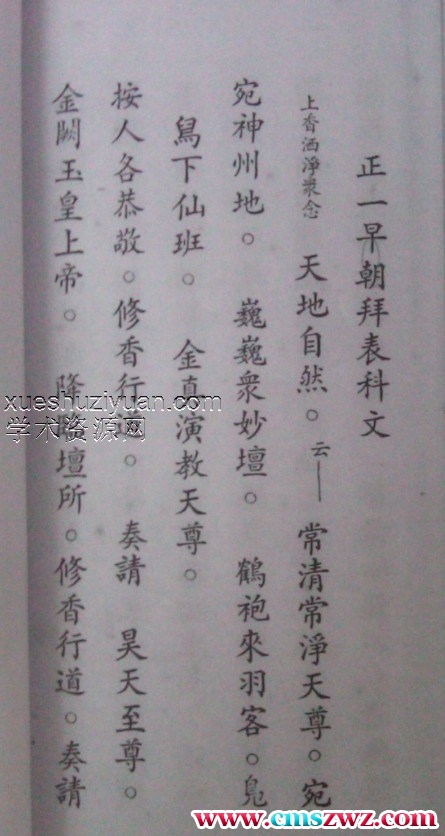 正一早朝拜表科文
上香洒淨衆念 天地自然。云— 常清常淨天尊。宛
宛神州地。 巍巍衆妙壇。 鶴袍來羽客。鳬
舄下仙班。 金真演教天尊。
按人各恭敬。修香行道。 奏請 昊天至尊。
金闕玉皇上帝。 降臨壇所。修香行道。奏請
xueshuziyuan.com
学术资源网
www.cmszwz.com